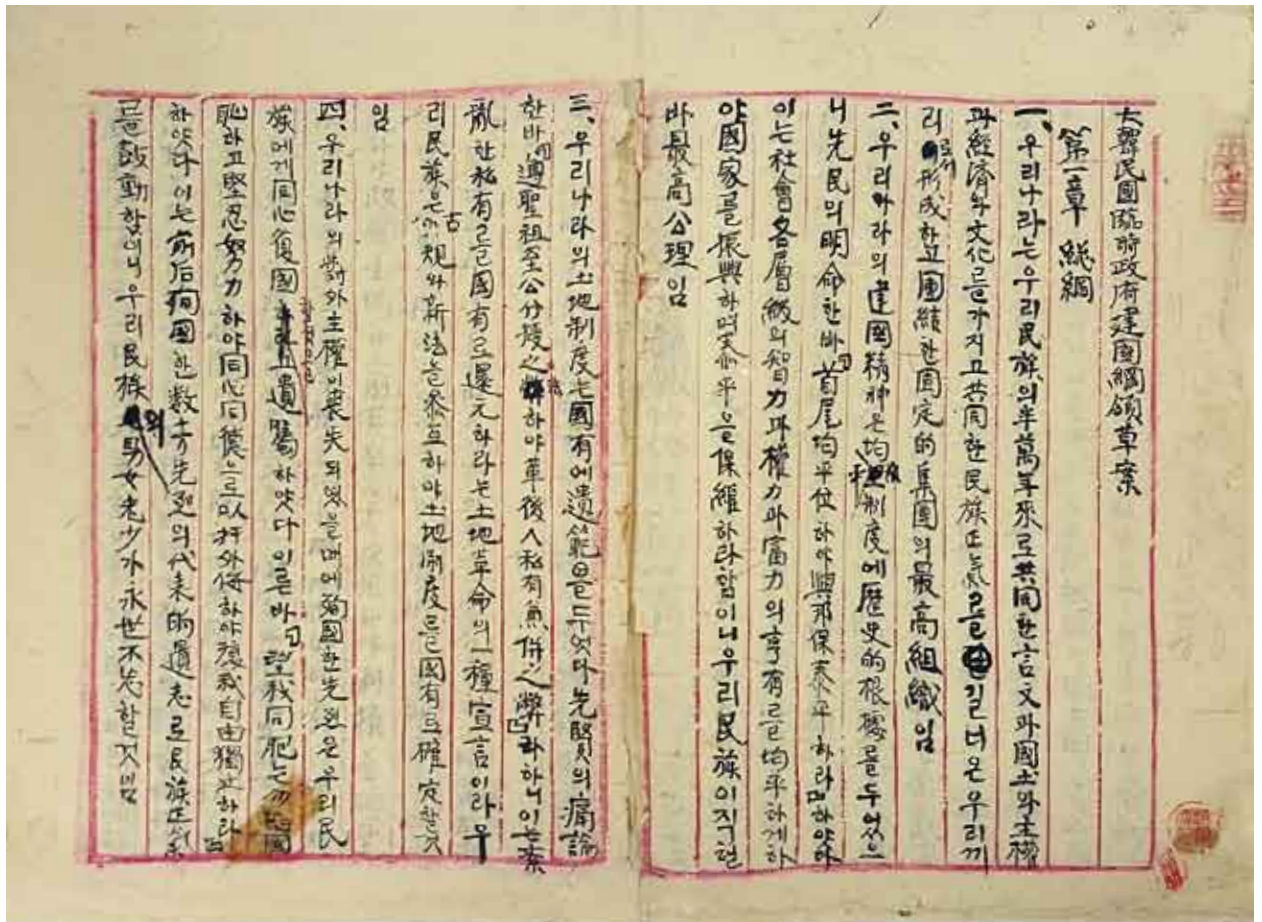 大韓民國臨時政府建國綱領草案
第一章 総綱
一、우리나라는우리民族의半萬年來로共同한言文과國土와主權
과經濟와文化를가지고共同한民族正氣를길너온우리끼
리로서形成하고團結한固定的集團의最高組織임
二、우리나라의建國精神은均制度에歷史的根據를두어쓰으
니先民의明命한바「首尾均平位하야興邦保泰平하라」하야아
이는社會各層級의智力과權力과富力의享有를均平하게하
야國家를振興하며泰平을保維하라함이니우리民族이직힐
바最高公理임
三、우리나라의土地制度는國有에遺範을두엇다先賢의痛論
한바「遵聖祖至公分授之法하야革後人私有兼併之弊」라하니이는紊
亂한私有를國有로還元하라는土地革命의一種宣言이라우
리民族은古規와新法을參互하야土地制度를國有로確定할것
임
四、우리나라의對外主權이喪失되엿을때에殉國한先烈은우리民
族에게同心復國할것으로遺囑하얏다이른바「望我同胞는勿忘國
恥하고堅忍努力하야同心同德으로以捍外侮하야復我自由獨立하라」
하얏다이는前后殉國한數十先烈의代表的遺志로民族正氣
를鼓動함이니우리民族의男女老少가永世不忘할것임